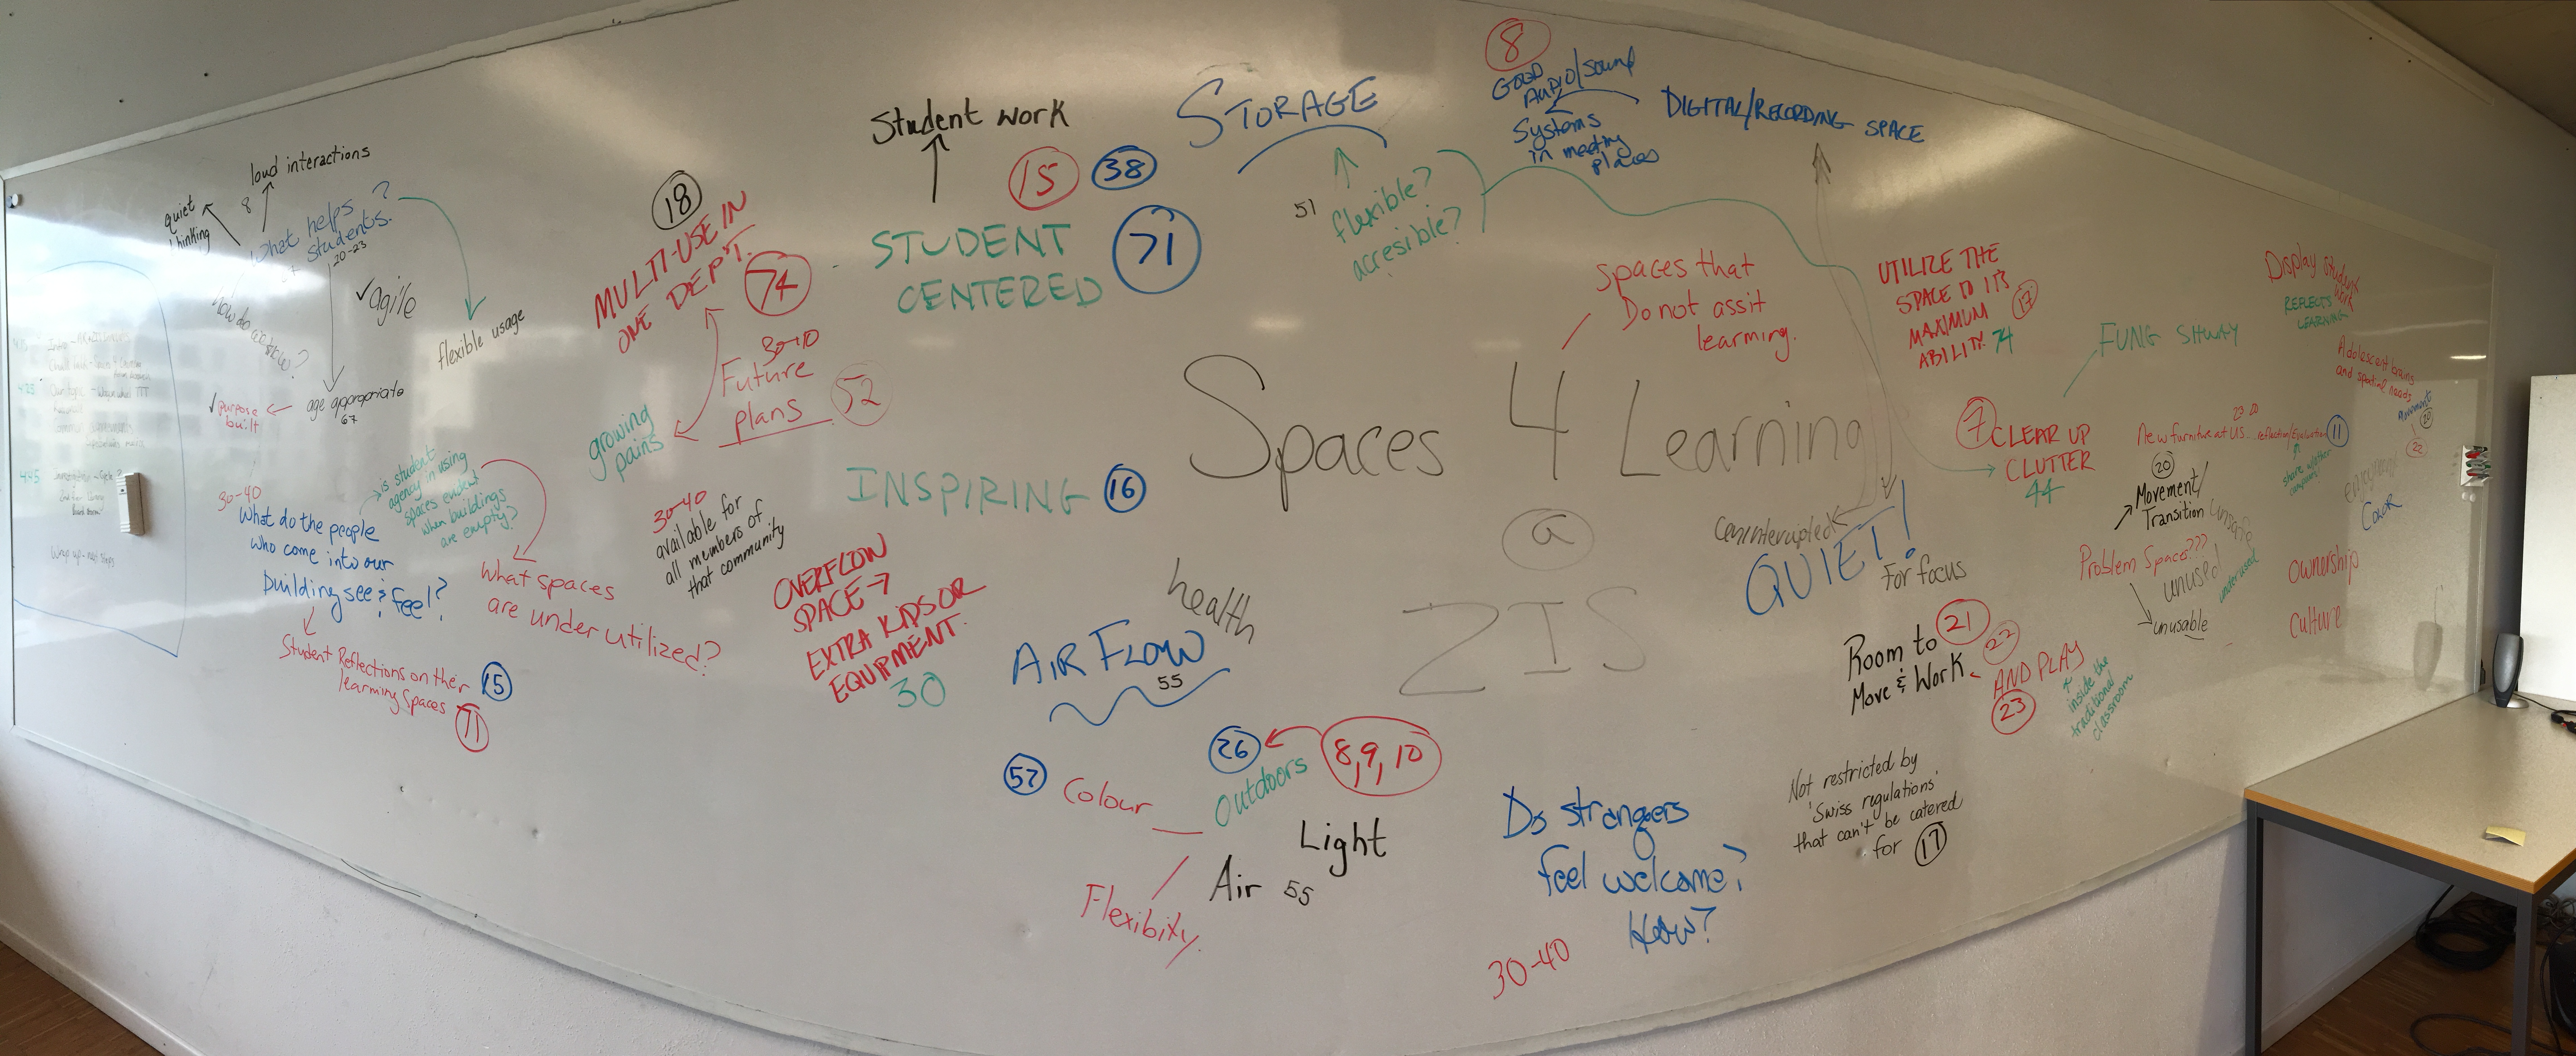 quiet
thinking
8
loud interactions
what helps
students.
?
20-23
how do we know?
✓agile
flexible usage
✓purpose
built
age appropriate
67
30-40
What do the people
who come into our
building see & feel?
is student
agency in using
spaces evident
when buildings
are empty?
What spaces
are under utilized?
Student Reflections on their
learning spaces
15
71
18
MULTI-USE IN
ONE DEPT.
74
Future
plans
52
growing
pains
30-40
available for
all members of
that community
Student work
15
38
STUDENT
CENTERED
71
INSPIRING
16
OVERFLOW
SPACE →
EXTRA KIDS OR
EQUIPMENT.
30
STORAGE
51
flexible?
accesible?
8
GOOD
AUDIO/Sound
Systems
in meeting
places
DIGITAL/RECORDING SPACE
Spaces that
Do not assit
learning.
Spaces 4 Learning
@
ZIS
health
AIR FLOW
55
57
Colour
26
Outdoors
8, 9, 10
Light
Air 55
Flexibity.
Do strangers
feel welcome?
How?
30-40
QUIET!
For focus
UTILIZE THE
SPACE TO ITS
MAXIMUM
ABILITY.
17
74
FUNG SHWAY
7
CLEAR UP
CLUTTER
44
Room to
Move & Work
21
22
AND PLAY
23
inside the
traditional
classroom
Not restricted by
'Swiss regulations'
that can't be catered
for
17
Display student
work
REFLECTS
LEARNING
Adolescent brains
and spatial needs
Movement
20
New furniture at US
reflection/Evaluation
11
20
Movement/
Transition
Problem Spaces???
unsafe
unused
underused
unusable
Color
ownership
culture